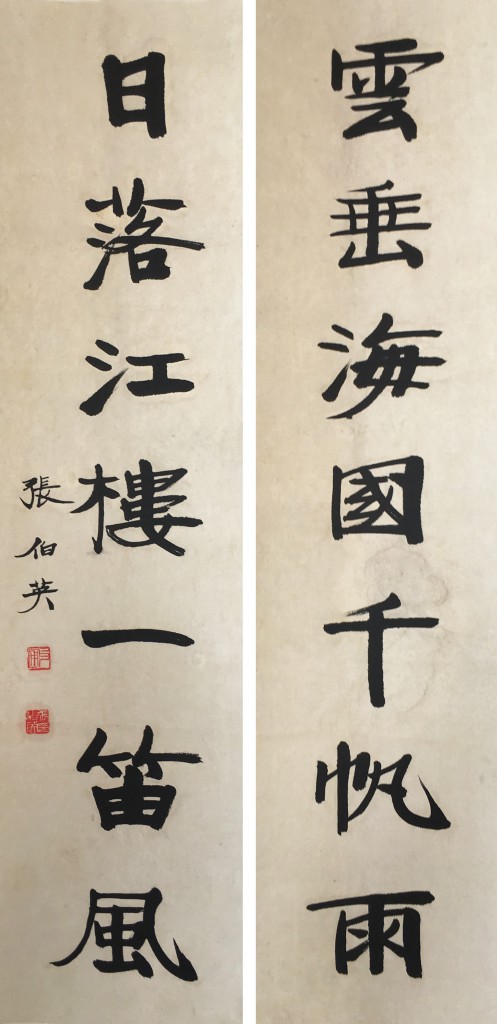 雲垂海國千帆雨
日落江樓一笛風
張伯英